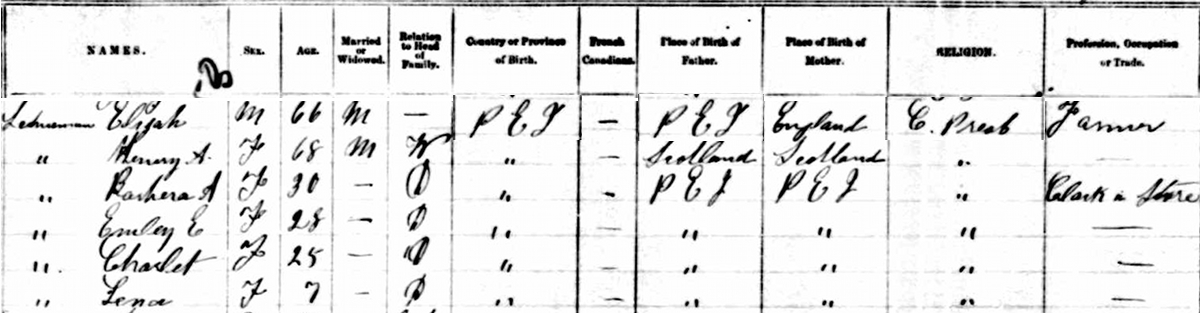 NAMES. SEX. AGE. Married or Widowed. Relation to Head of Family. Country or Province of Birth. French Canadians. Place of Birth of Father. Place of Birth of Mother. RELIGION. Profession, Occupation or Trade.
Elijah M 66 M — P E I — P E I England C. Presb Farmer
" Henery A. F 68 M W " — Scotland Scotland " —
" Barbera A F 30 — D " — P E I P E I " Clark in Store
" Emley E F 28 — D " — " " " —
" Charlet F 25 — D " — " " " —
" Lena F 7 — D " — " " " —